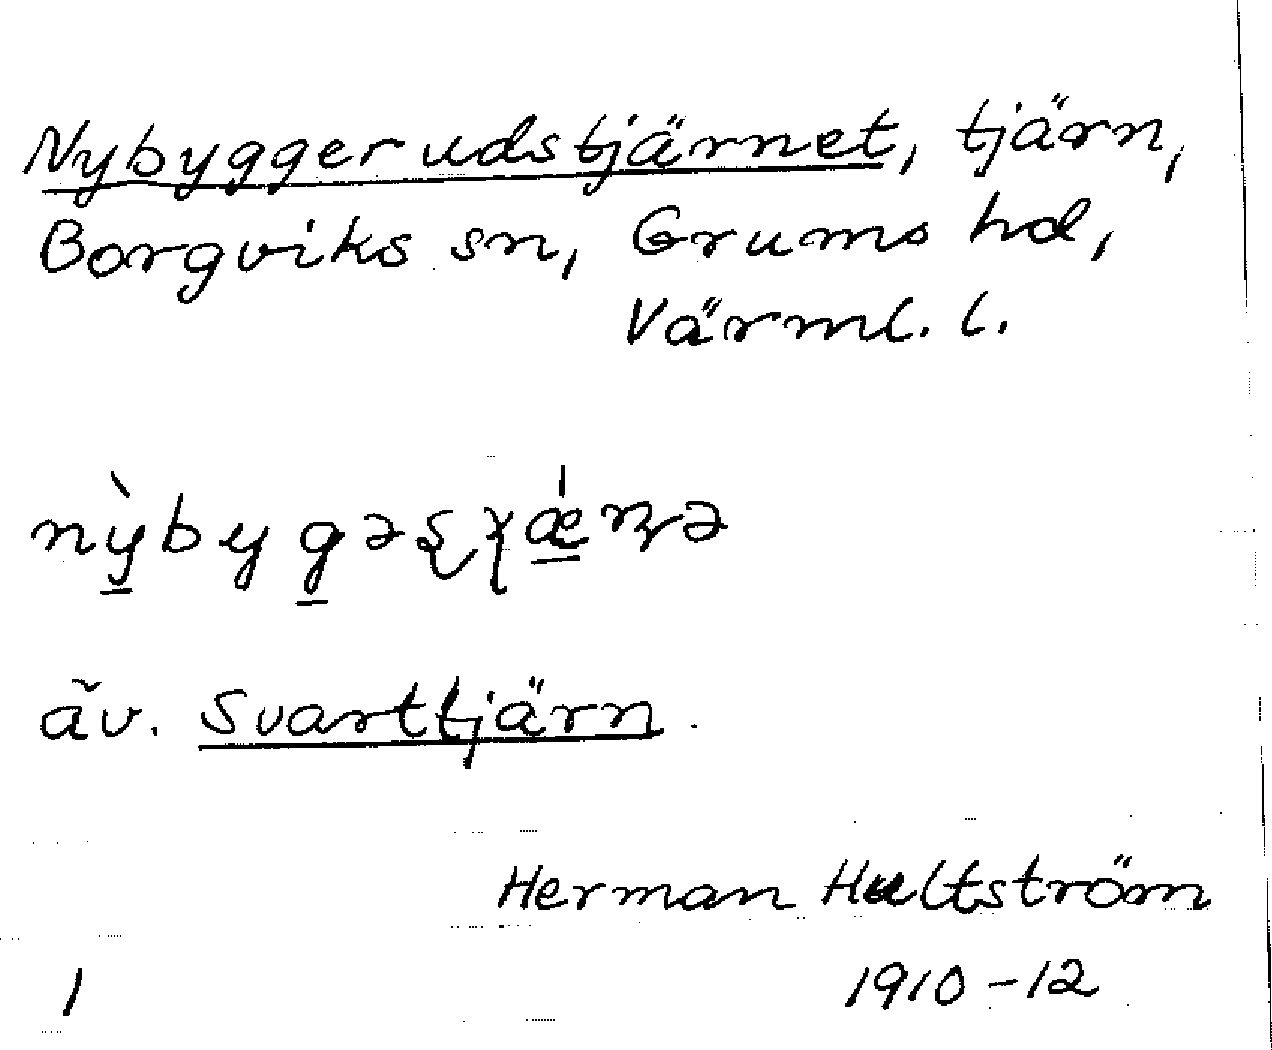 Nybyggerudstjärnet, tjärn,
Borgviks sn, Grums hd,
Värml. l.
äv. Svarttjärn.
Herman Hultström
1 1910-12